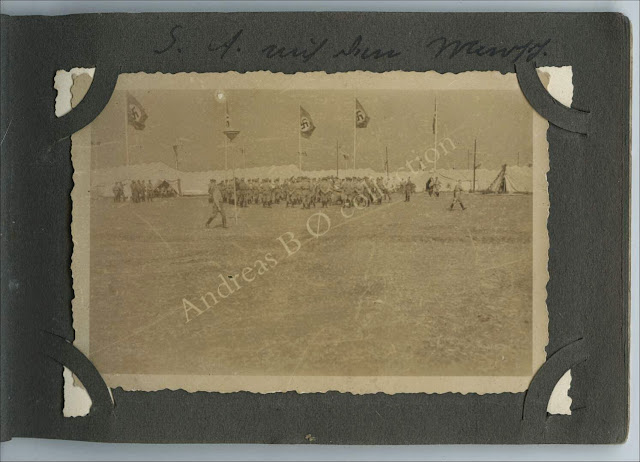 S. A. auf dem Marsch.
Andreas B Ø collection